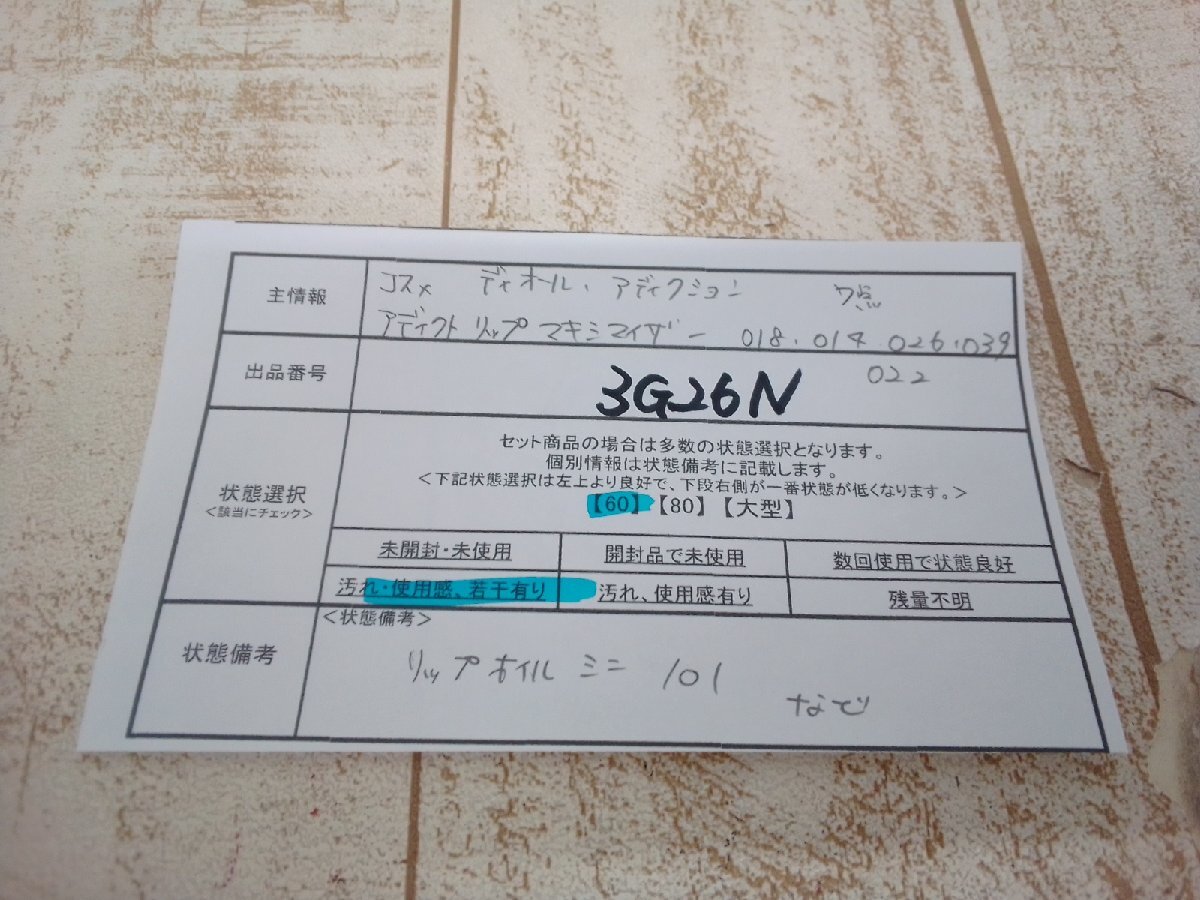 主情報
コスメ ディオール、アディクション 7点
アディクト リップ マキシマイザー 018.014 026.039
022
出品番号
3G26N
状態選択
<該当にチェック>
セット商品の場合は多数の状態選択となります。
個別情報は状態備考に記載します。
<下記状態選択は左上より良好で、下段右側が一番状態が低くなります。>
【60】【80】【大型】
未開封・未使用
開封品で未使用
数回使用で状態良好
汚れ・使用感、若干有り
汚れ、使用感有り
残量不明
状態備考
<状態備考>
リップオイル ミニ 101
など